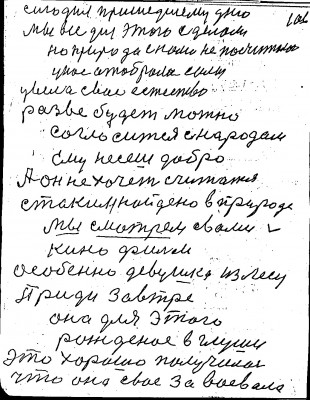 сегодня пришедшему дню
мы все для этого сделали
но природа с нами не посчиталась
у нас отобрала силы
увела свое естество
разве будет можно
согласится с народам
ему несем добро
А он не хочет считатся
с таким найдено в природе
мы смотрем с вами
кино филм
особенно девушка из лесу
Приди Завтре
она для Этого
рожденое в глуши
Это хорошо получилось
что она свое За воевала